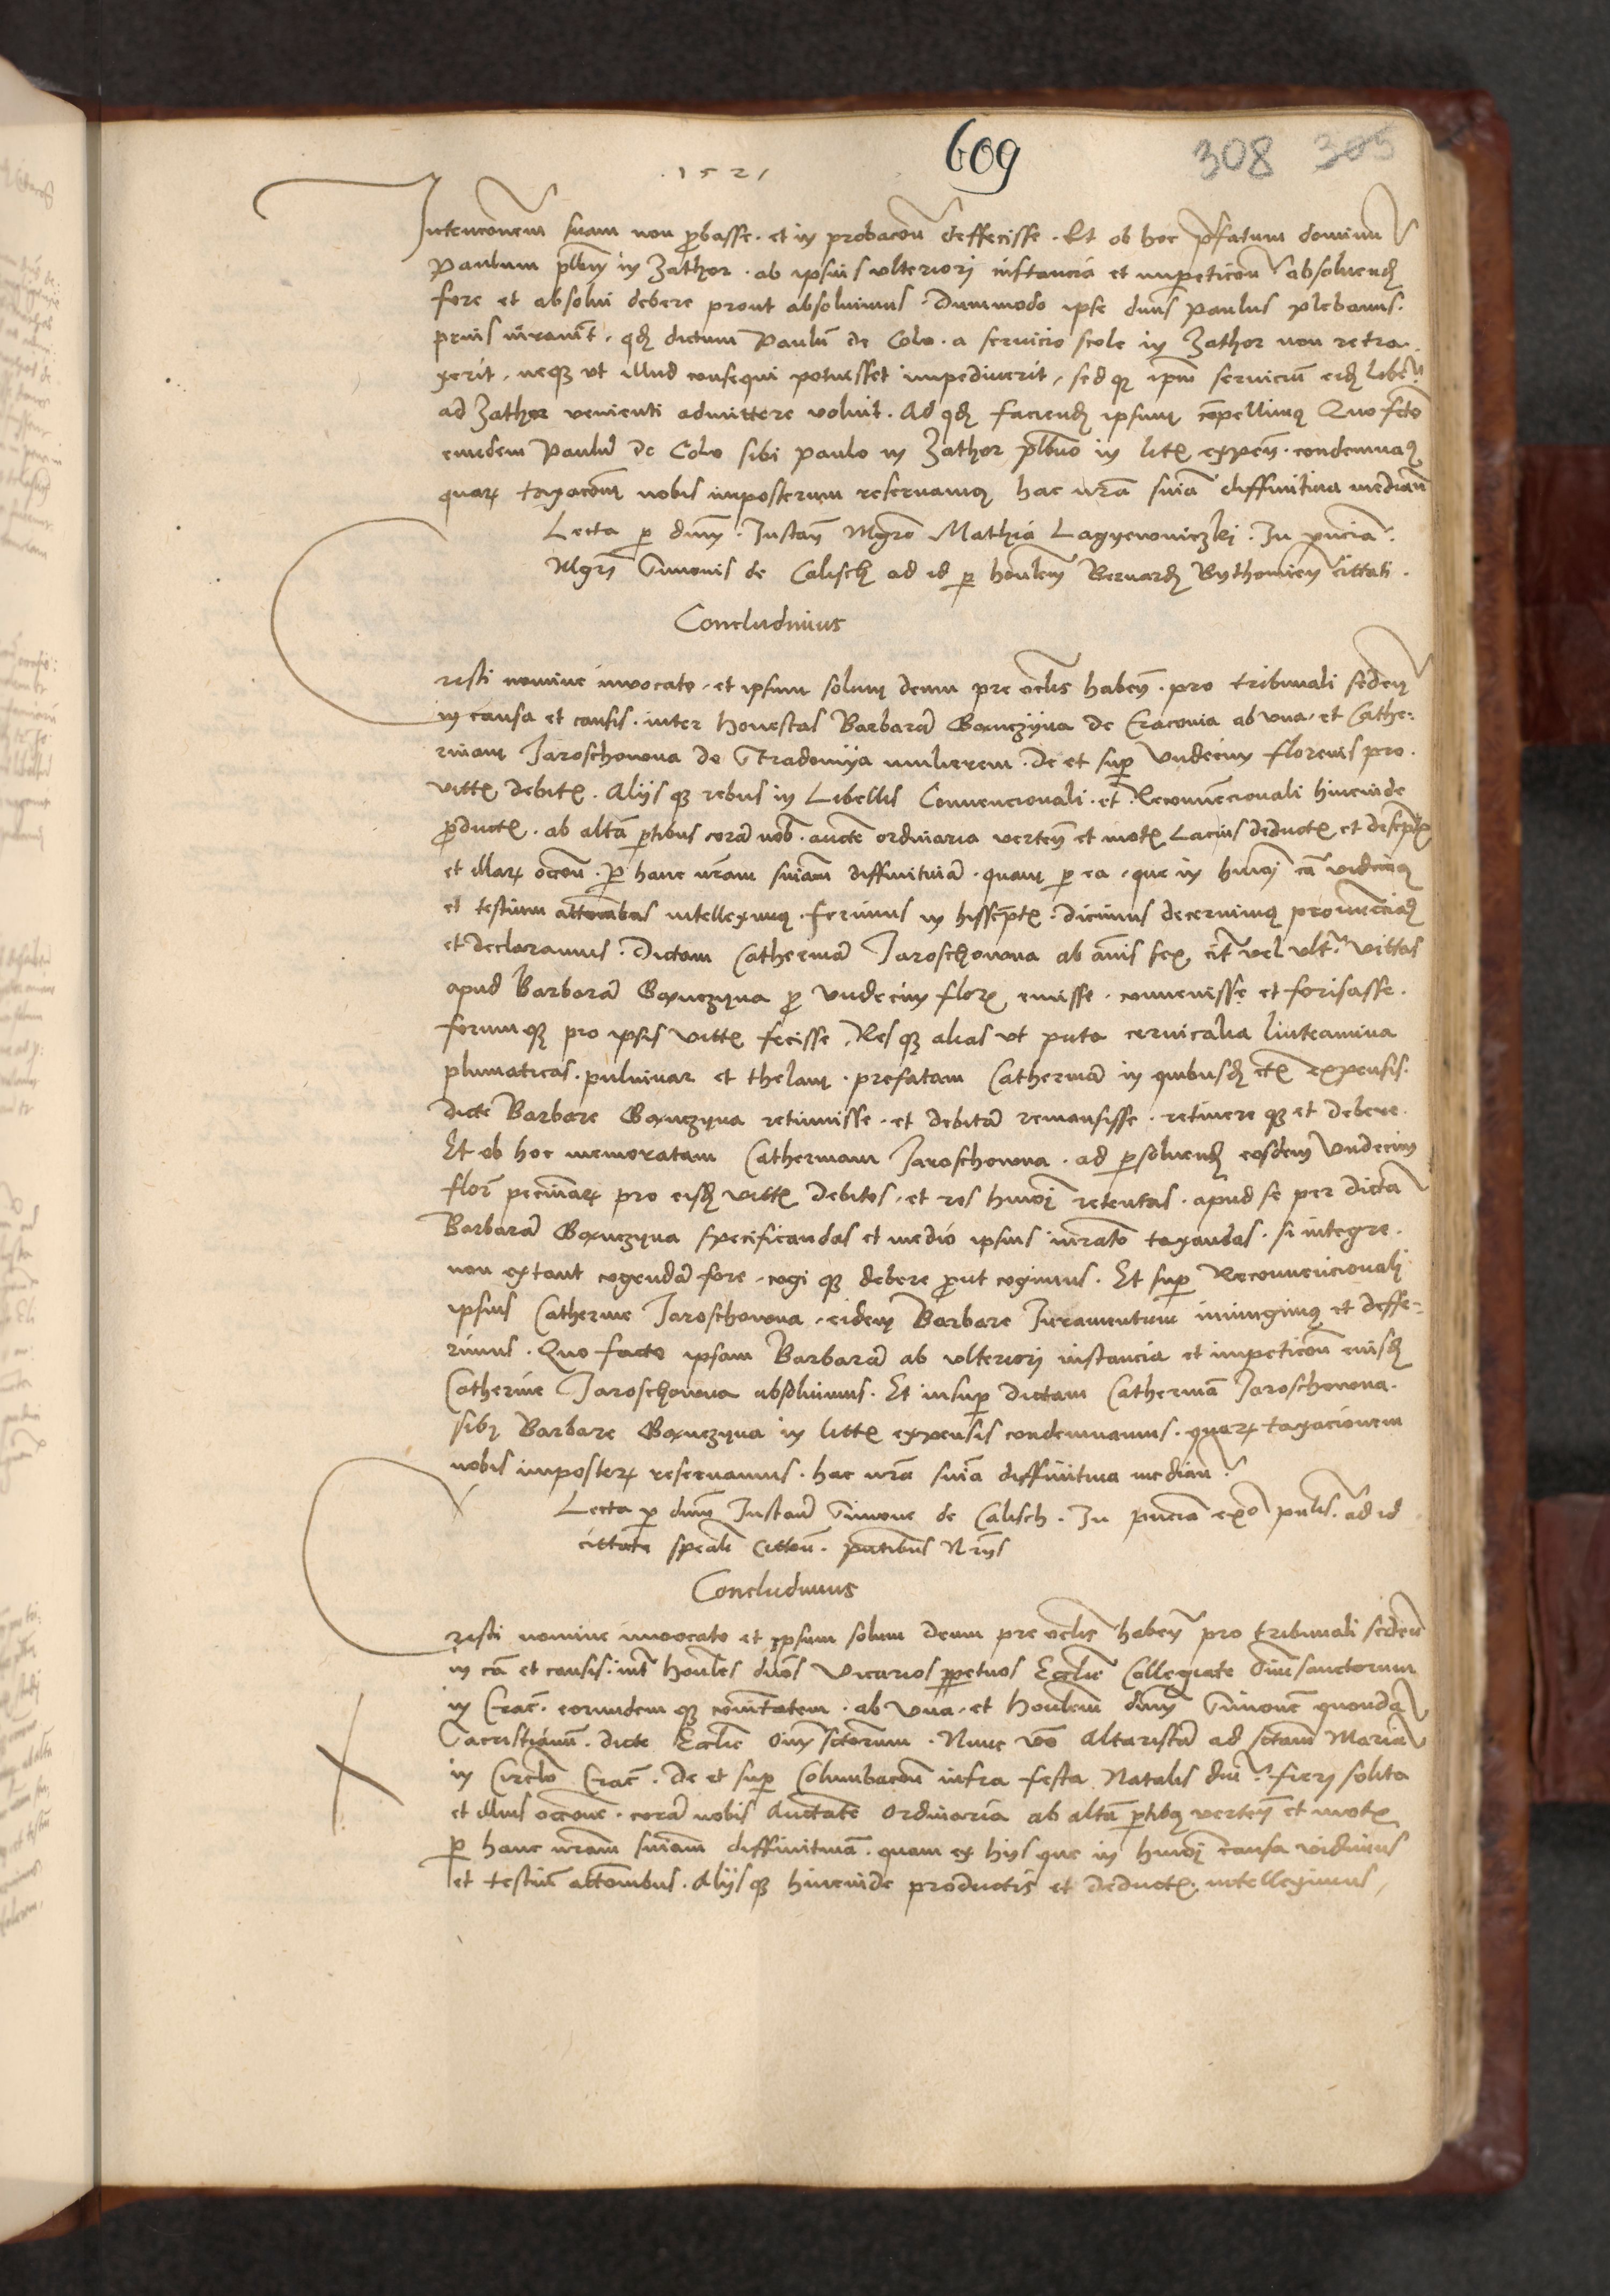 1521 609 308 305
Intenconem suam non probasse. et in probacoñ deffecisse. Et ob hoc prefatum dominum
Paulum plbñ in Zathor. ab ipsius ulteriori instancia et impeticoñ absoluend
fore et absolui debere prout absoluimus. Dummodo ipse dnus Paulus plebanus.
prius iurauit. qd dictum Paulū de Colo. a seruicio scole in Zathor non retra
xerit, neq ut illud consequi potuisset impediuerit, sed q ipm seruiciū eid
ad Zathor venienti admittere voluit. Ad qd faciend ipsum cōpellimus Quo fcto
eundem Paulū de Colo sibi Paulo in Zathor plbno in lit expeñ. condemnaꝰ
quaꝝ taxacoem nobis imposterum reseruamus hac nrā sniā diffinitiua mediañ
Lecta p dnm. Instañ Mgro Mathia Lagyewniczki. In pñcia
Mgri Simonis de Calisch ad id p honlem Bernard Bythomieñ cittati.
Concludimus
risti nomine inuocato. et ipsum solum deum pre oclis habeñ. pro tribunali sedeñ
in causa et causis. inter honestas Barbarā Gqnczyna de Cracouia ab una. et Cathe:
rinam Jaroschowna de Stradomya mulierem. de et sup undecim florenis pro.
vitt debit. Alijs q rebus in Libellis Conuencionali. et Reconuencionali hincinde
product. ab altā ptibus corā nob. aucte ordinaria verteñ et mot Lacius deduct et descpt
et illaꝝ occoñ. p hanc nrām sniam diffinitiuā. quam p ea. que in hmoi cā vidimus
et testium attconibus intelleximus. ferimus in hiisscpt. dicimus decernimus pronunciaꝰ
et declaramus. Dictam Catherinā Jaroschowna ab ānis sex cit vel ult vittas
apud Barbarā Gqnczyna p undecim flor emisse. conuenisse et forisasse.
forum q pro ipsis vitt fecisse. Res q alias ut puta ceruicalia linteamina
plumaticas. puluinar et thelam. prefatam Catherinā in quibusd expensis.
dicte Barbare Gqnczyna retinuisse. et debitā remansisse. retinere q et debere.
Et ob hoc memoratam Catherinam Jaroschowna. ad psoluend eosdem undecim
flor pecuniaꝝ pro eisd vitt debitos. et res hmoi retentas. apud se per dictā
Barbarā Gqnczyna specificandas et medio ipsius iurato taxandas. si integre.
non extant cogendā fore. cogi q debere prout cogimus. Et sup Reconuencionali
ipsius Catherine Jaroschowna. eidem Barbare Juramentum iniungimus et deffe:
rimus. Quo facto ipsam Barbarā ab ulteriori instancia et impeticoñ eiusd
Catherine Jaroschowna absoluimus. Et insup dictam Catherinā Jaroschowna.
sibi Barbare Gqnczyna in litt expensis condemnamus. quaꝝ taxacionem
nobis imposteꝝ reseruamus. hac nrā sniā diffinitiua mediañ
Lecta p dnm Instañ Simone de Calisch. In pñcia ex pulis. ad id
cittate speali Cittoñ. pntibus Nrijs
Concludimus
risti nomine inuocato et ipsum solum deum pre oclis habeñ pro tribunali sedeñ
in cā et causis. int honles dnōs Vicarios ppetuos Ecclie Collegiate Oīm sanctorum
in Crac. eorundem q cōitatem. ab una. et honlem dnm Simonē quondā
Sacristianū. dicte Ecclie Oīm sctorum. Nunc vō Altaristā ad sctam Mariā
in Circlo Crac. De et sup Columbacoñ infra festa Natalis dni fieri solita
et illius occōne. corā nobis Auctate Ordinaria ab altā ptibꝰ verteñ et mot
p hanc nrām sniam diffinitiuā. quam ex hijs que in hmoi causa vidimus
et testiū attcōnibus. Alijs q hincinde productis et deduct. intelleximus,